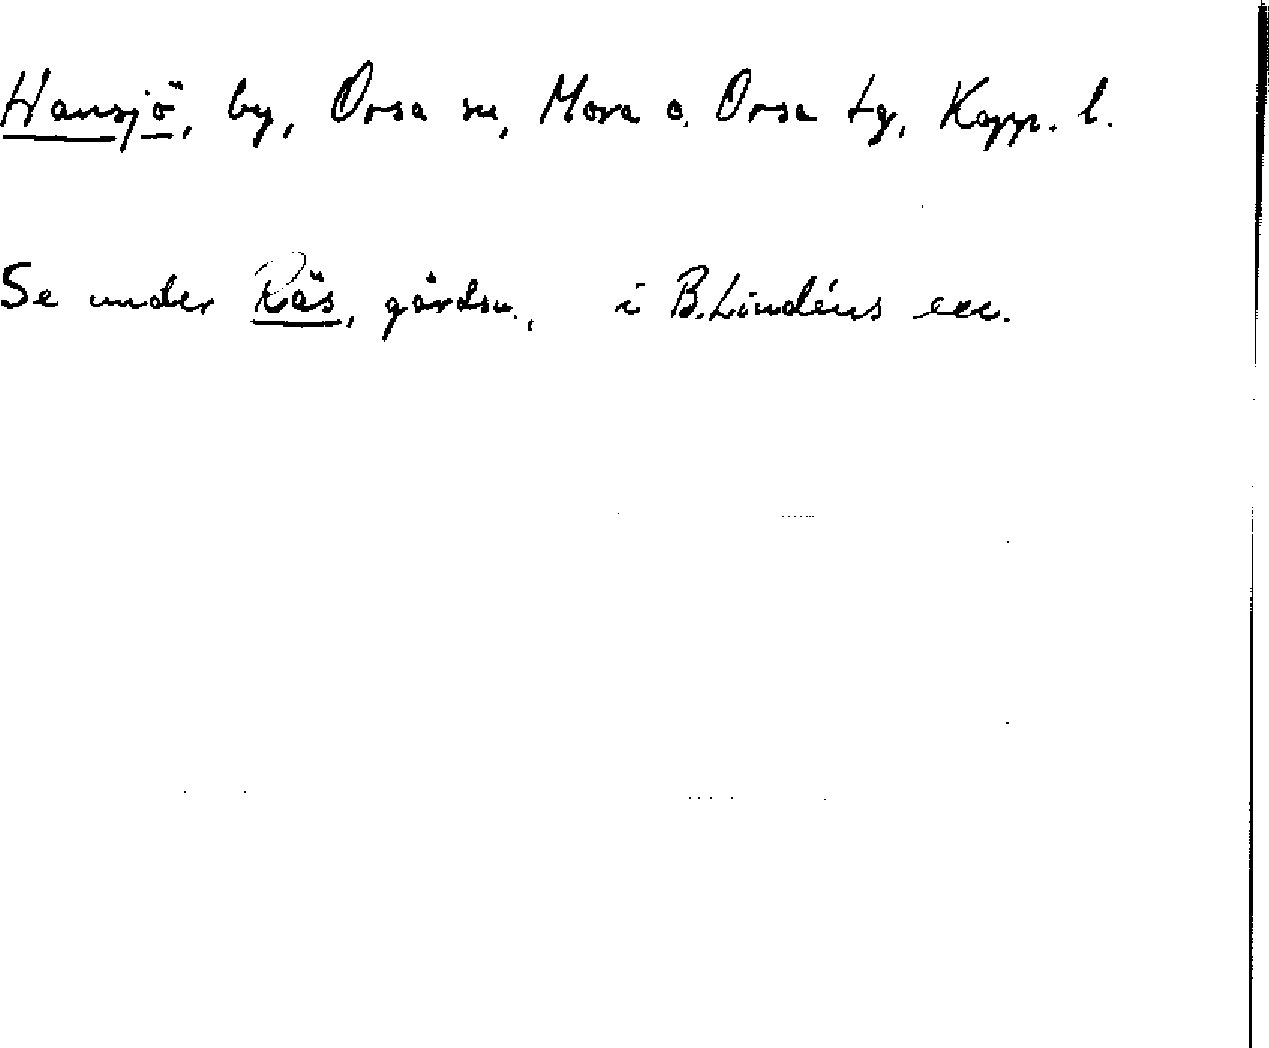 Hansjö, by, Orsa sn, Mora o. Orsa tg, Kopp. l.
Se under Räs, gårdsn., i B. Lindéns exc.